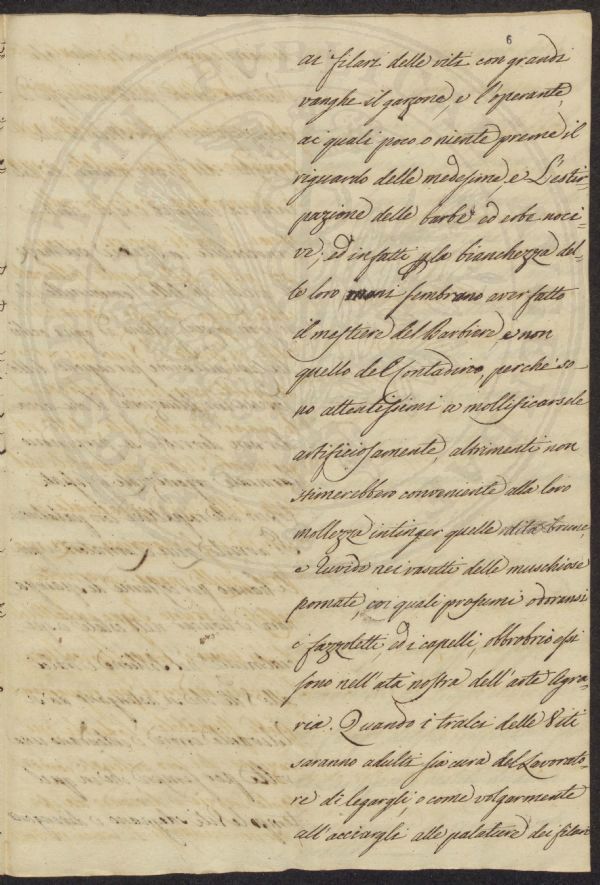 6
ai filari delle viti con grandi
vanghe il garzone, e l'operante,
ai quali poco o niente preme il
riguardo delle medesime, e L'estir-
pazione delle barbe ed erbe noci-
ve; ed in fatti la bianchezza del-
le loro mani sembrano aver fatto
il mestiere del Barbiere, e non
quello del Contadino, perchè so-
no attentissimi a mollificarsele
artificiosamente, altrimenti non
stimerebbero conveniente alla loro
mollezza intinger quelle dita brune,
e ruvide nei vasetti delle muschiose
pomate, coi quali profumi odoransi
e fazzoletti, ed i capelli, obbrobrio essi
sono nell'età nostra dell'arte Agra-
ria. Quando i tralci delle Viti
saranno adulti sia cura del Lavorato-
re di legargli, o come volgarmente
all'acciargli alle palature dei filari